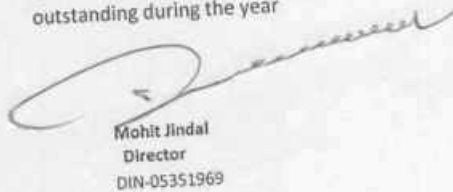 outstanding during the year
Mohit Jindal
Director
DIN-05351969